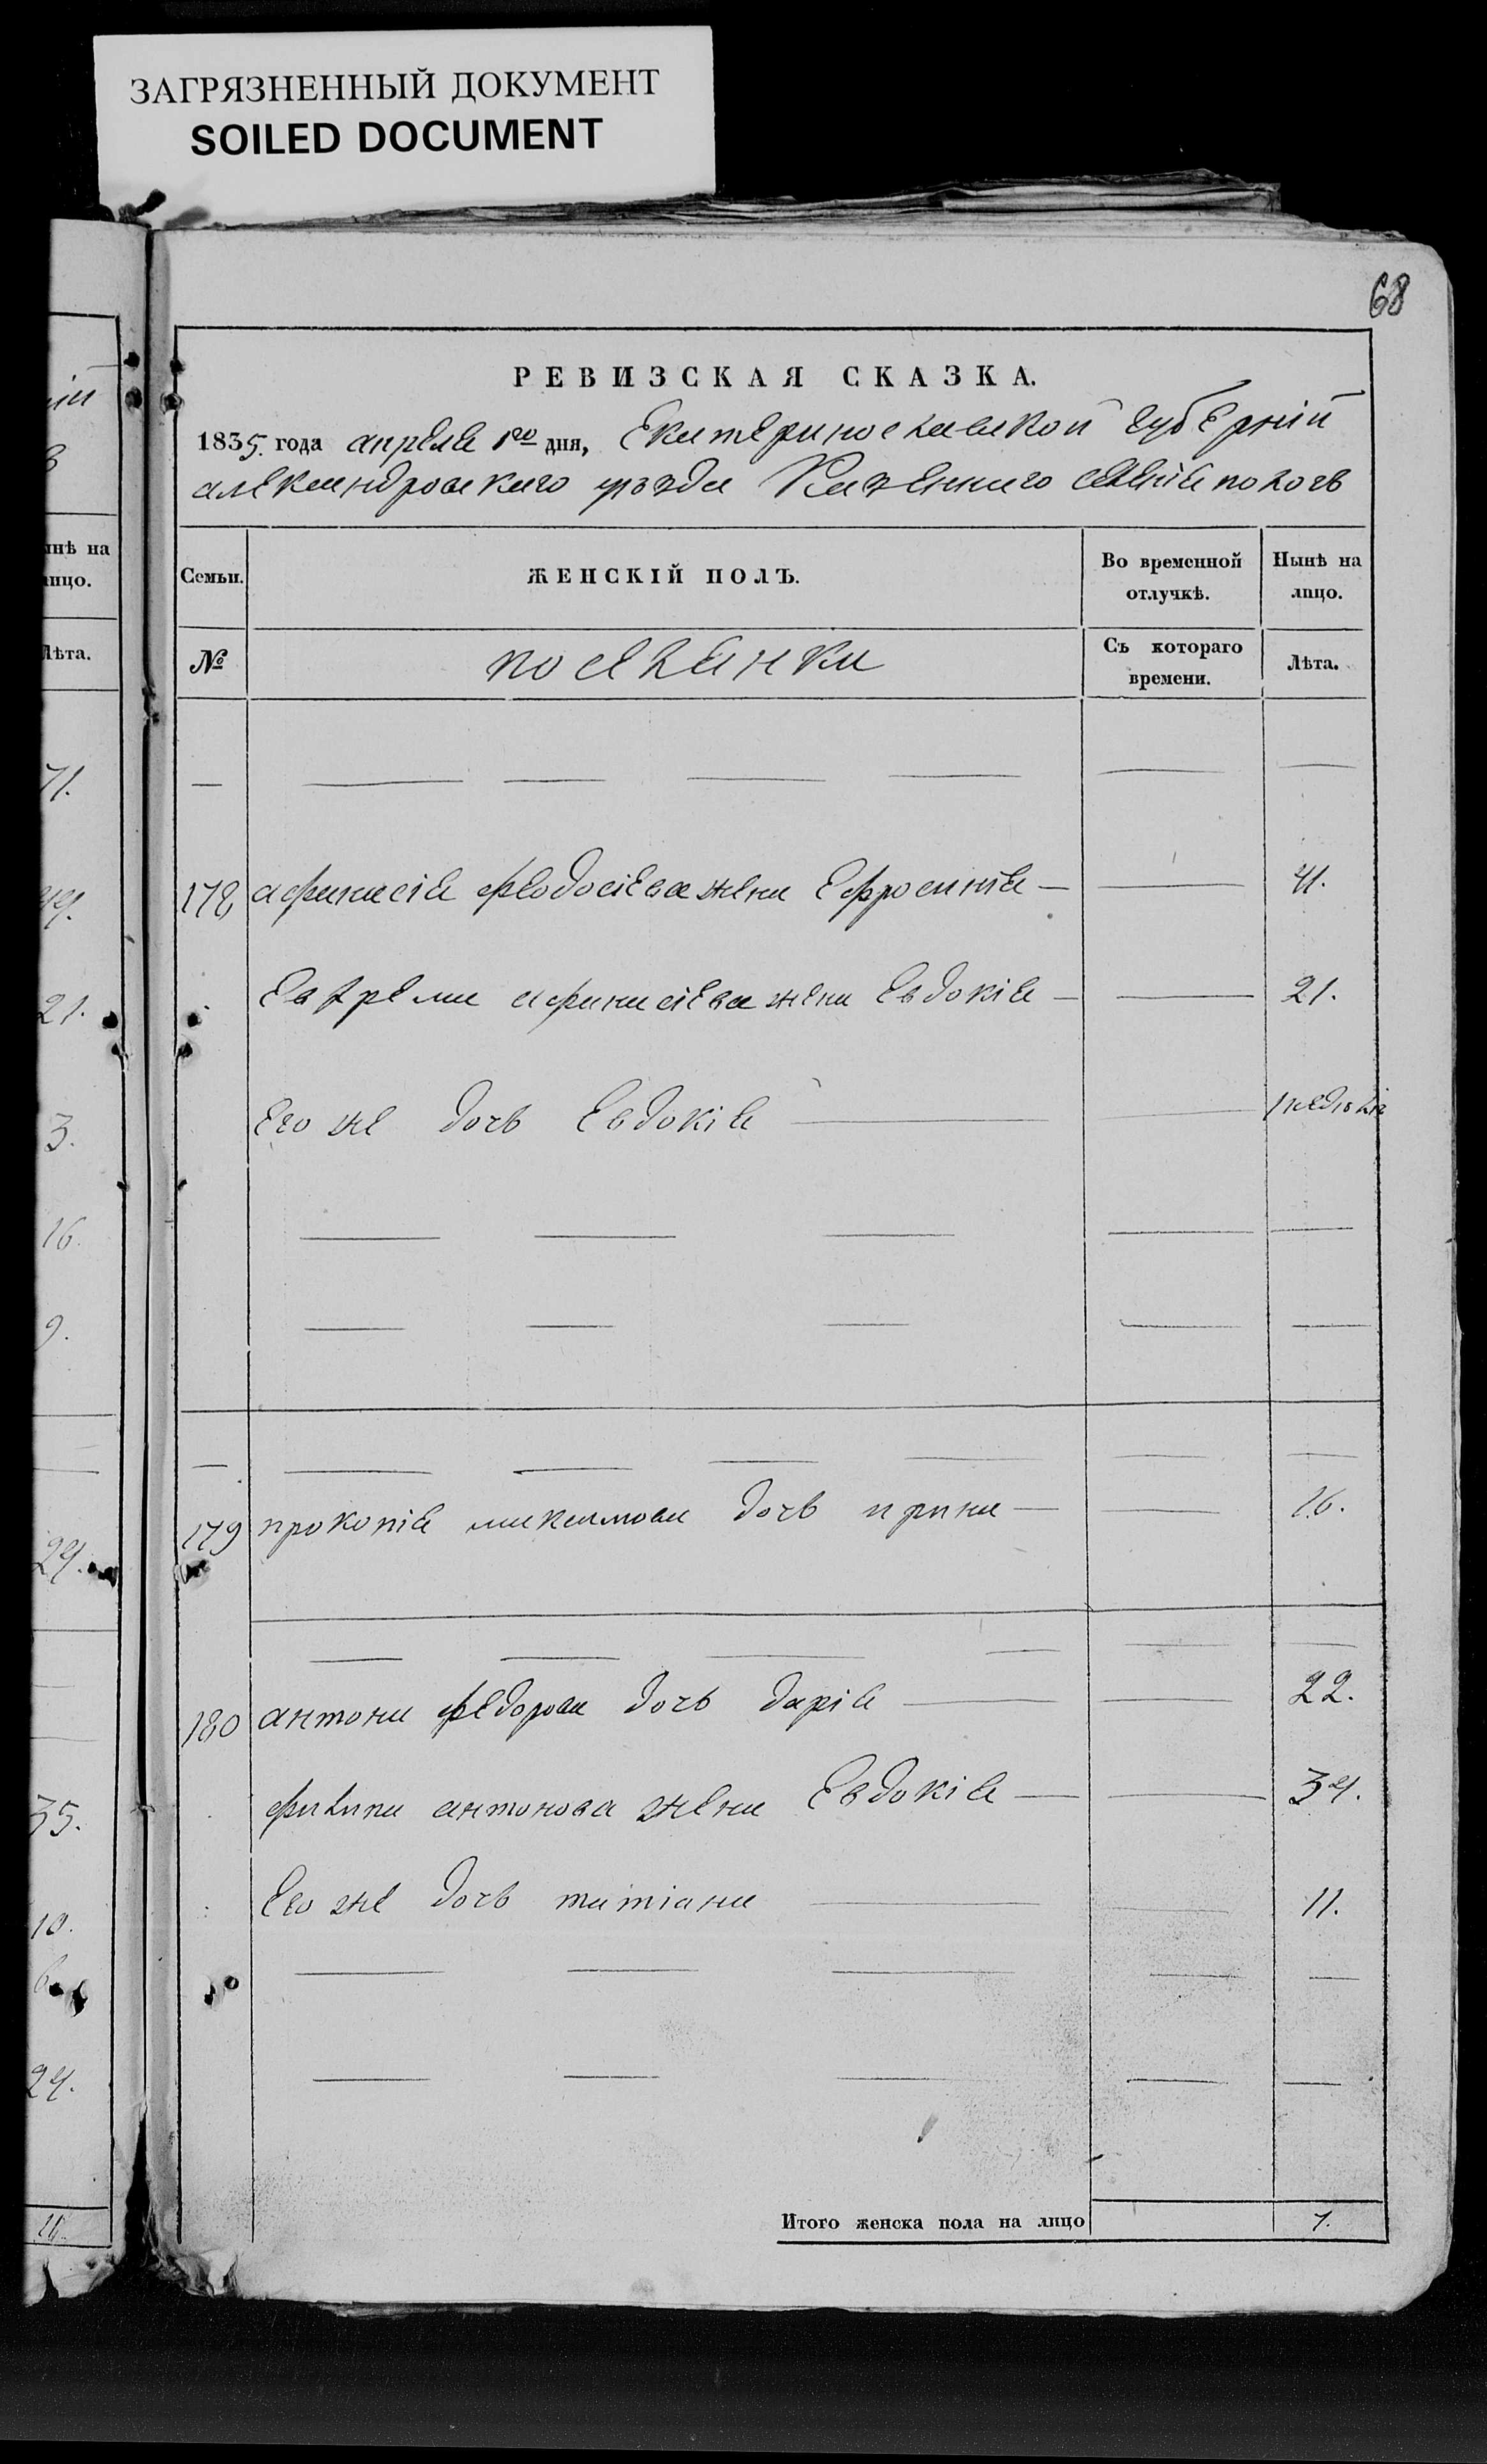 ЗАГРЯЗНЕННЫЙ ДОКУМЕНТ
SOILED DOCUMENT
68
РЕВИЗСКАЯ СКАЗКА.
1835 года апреля 1го дня, Екатеринославской губернїи
александровскаго уѣзда Казенного селенїя пологъ
Семьи. ЖЕНСКІЙ ПОЛЪ. Во временной отлучкѣ. Нынѣ на лицо.
№ поселянки Съ котораго времени. Лѣта.
178 афанасия феодосіева жена Ефросинія 41.
Евхрема афанасіева жена Евдокія 21.
Его же дочь Евдокія
179 прокопія максимова дочь ирина 16.
180 антона федорова дочь дарія 22.
филипа антонова жена Евдокія 34.
Его же дочь татіана 11.
Итого женска пола на лицо 7.
инѣ на
лицо.
Лѣта.
71.
49.
21.
3.
16.
9.
24.
35.
10.
6.
24.